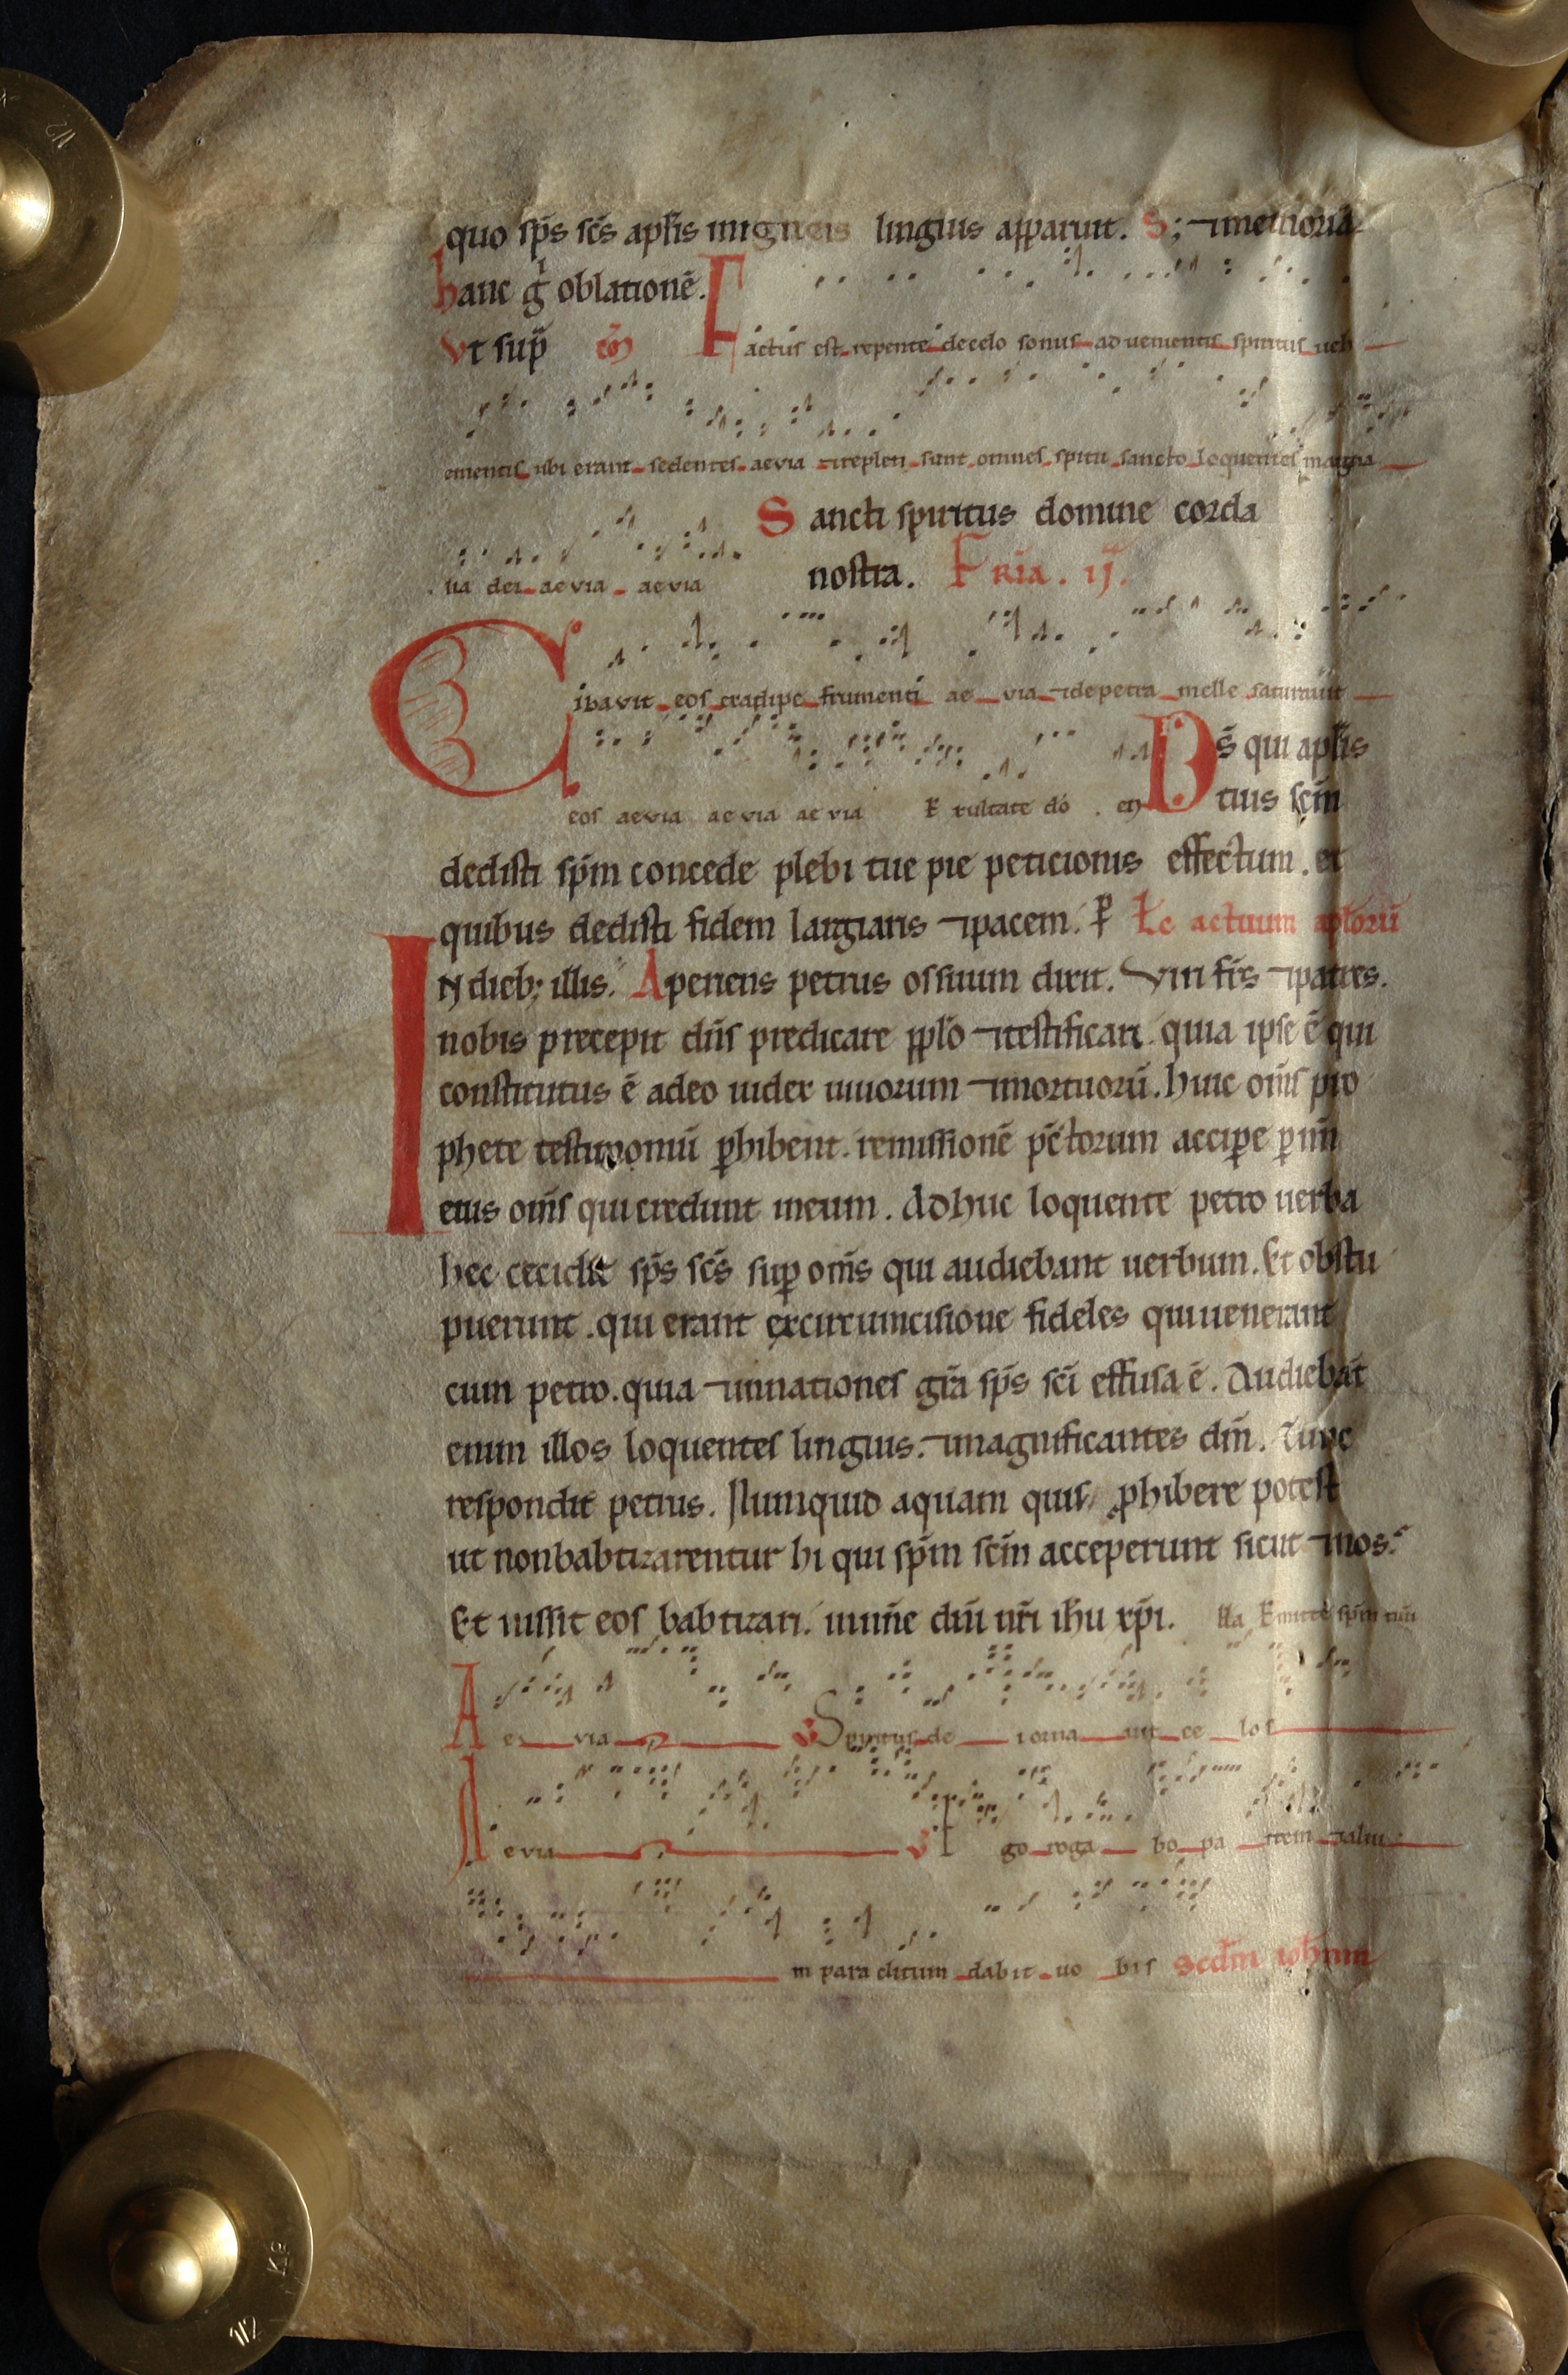 quo sp̄s sc̄s apl̄is in igneis linguis apparuit. S; ⁊ memoriā
hanc g̊ oblationē.
Vt sup̄ co᷒m Factus est repente decelo sonus aduenientis spiritus ueh
ementis ubi erant sedentes aevia ⁊ repleti sunt omnes spū sancto loquentes magna
lia dei aevia aevia Sancti spiritus domine corda
nostra. Fria. ij.
Cibavit eos exadipe frumenti ae via ⁊ depetra melle saturauit
eos aevia aevia aevia Exultate dō Ds̄ qui apl̄is
tuis sc̄m
dedisti sp̄m concede plebi tue pie peticionis effectum. et
quibus dedisti fidem largiaris ⁊ pacem. P Lc̄ actuum aplorū
In dieb; illis. Aperiens petrus os suum dixit. Viri fr̄s ⁊ patres.
nobis precepit dn̄s predicare pplō ⁊ testificari. quia ipse ē qui
constitutus ē adeo iudex uiuorum ⁊ mortuorū. huic om̄s pro
phete testimoniū p̱hibent. remissionē pc̄torum accipe p̱ nn̄
eius om̄s qui credunt ineum. Adhuc loquente petro uerba
hec cecidit sp̄s sc̄s sup̱ om̄s qui audiebant uerbum. Et obstu
puerunt. qui erant excircumcisione fideles qui uenerant
cum petro. quia ⁊ innationes gr̄a sp̄s sc̄i effusa ē. Audiebāt
enim illos loquentes linguis. ⁊ magnificantes dm̄. Tunc
respondit petrus. Numquid aquam quis p̱hibere potest
ut nonbabtizarentur hi qui sp̄m sc̄m acceperunt sicut ⁊ nos.
Et iussit eos babtizari. innn̄e dn̄i nr̄i ih̄u xp̄i. Alla Emitte sp̄m tuū
Ae via V Spiritus de i orna uit ce los
A evia V Ego roga bo pa trem ⁊ aliu
m para clitum dabit uo bis Scdm iohnm